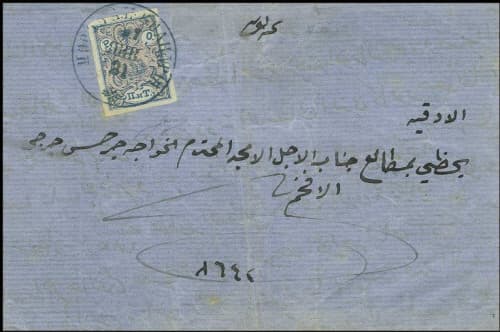 Р.О.
П.и Т.
الادقيه
يحظي بمطالع جناب الاجل الامجد المحترم الخواجه جرجس جرجي
الافخم
٨٦٤٢